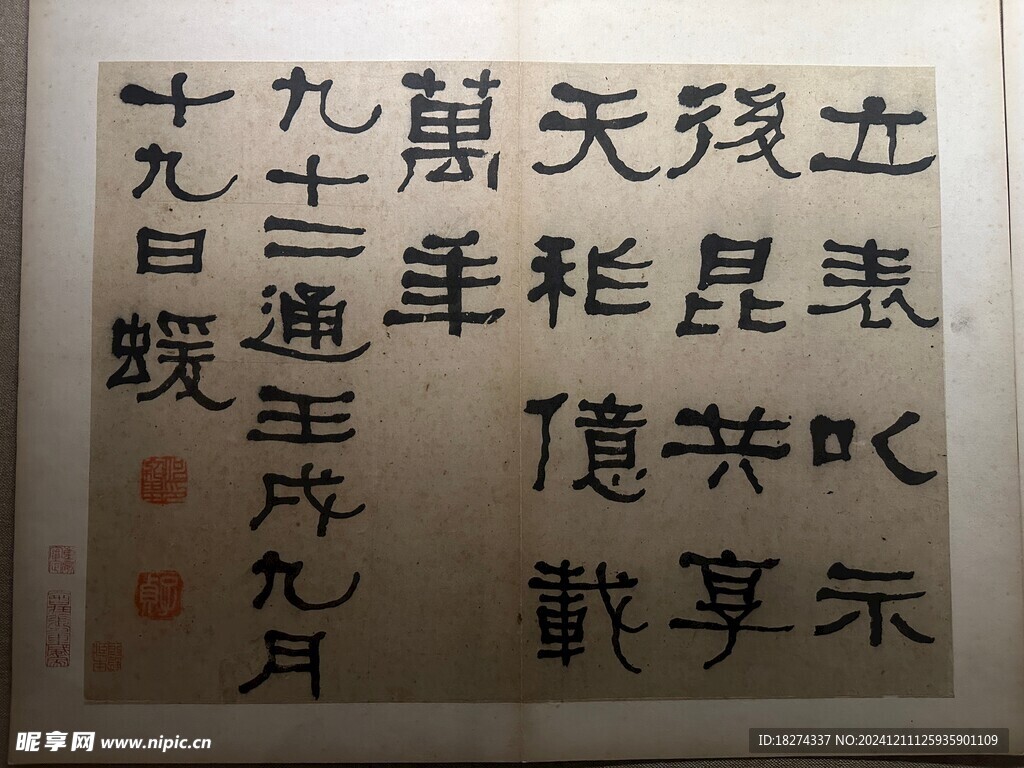 立表㕥示
後昆共享
天祚億載
萬年
九十二通壬戌九月
十九日蝯
子貞
昵享网 www.nipic.cn
ID:18274337 NO:20241211125935901109